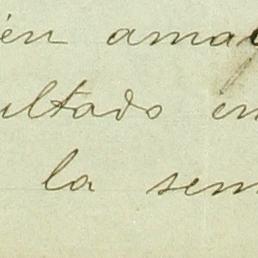 én ama
ultado en
la sem